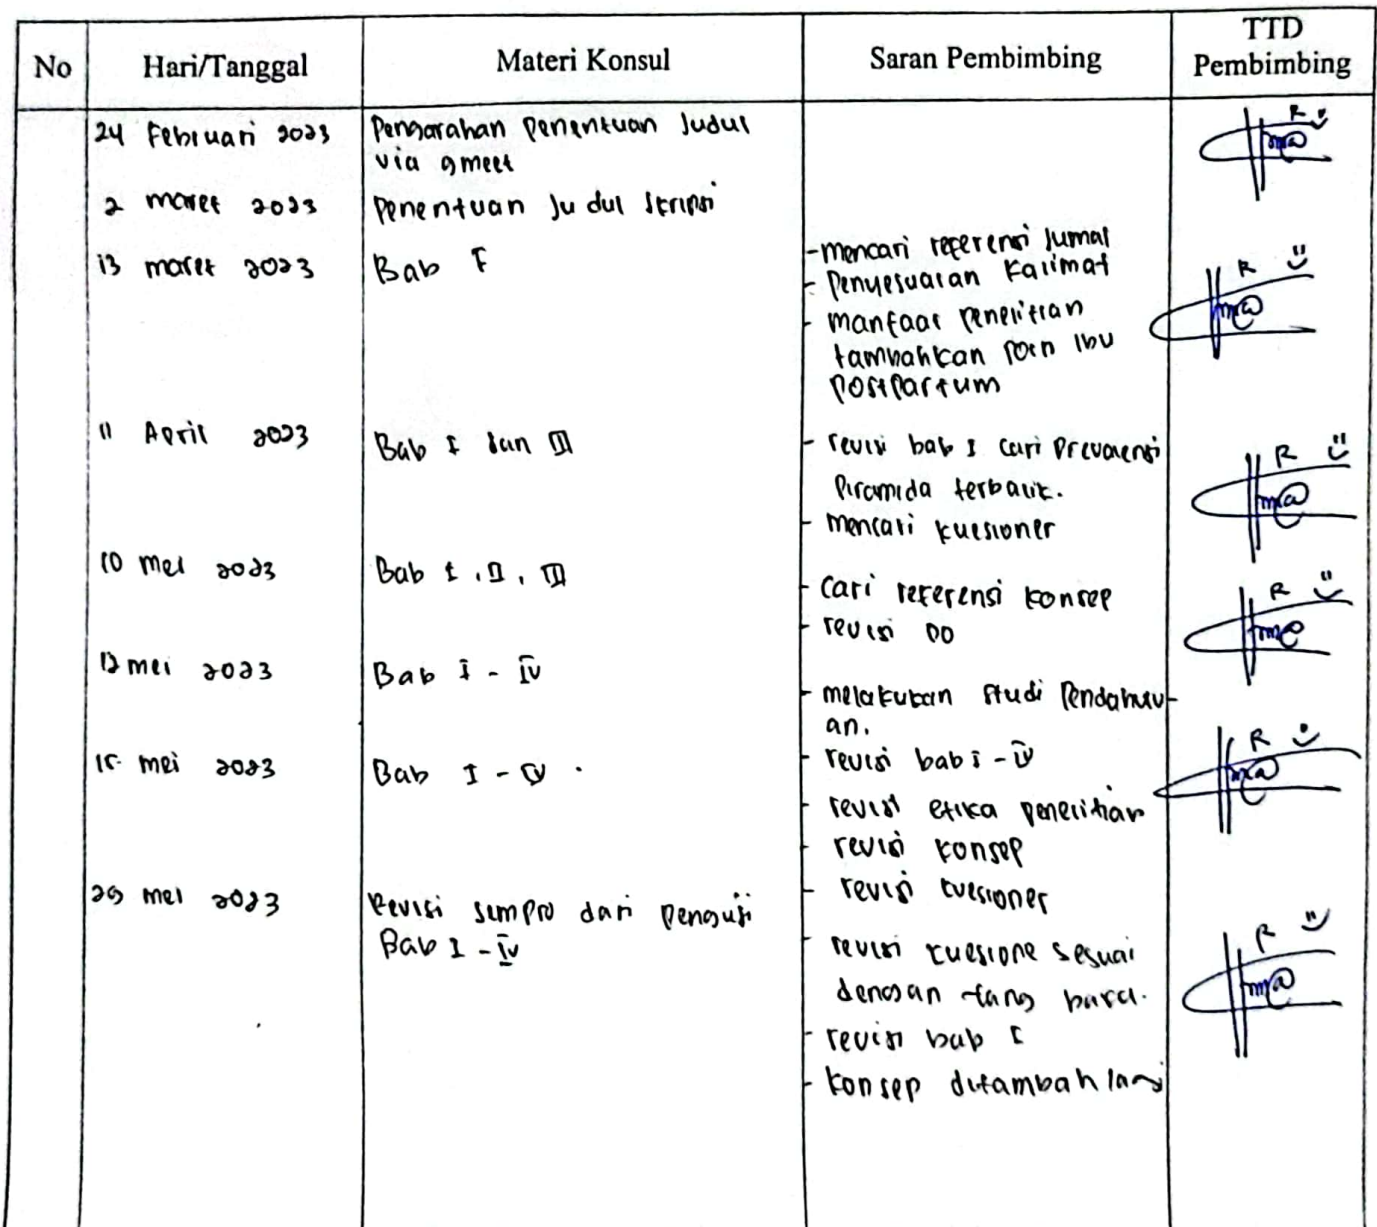 No Hari/Tanggal Materi Konsul Saran Pembimbing TTD Pembimbing
24 Februari 2023 Pengarahan penentuan Judul
via gmeet
2 maret 2023 Penentuan Judul Skripsi
13 maret 2023 Bab I
- mencari referensi Jurnal
- Penyesuaian Kalimat
- manfaat penelitian
tambahkan poin Ibu
postpartum
11 April 2023 Bab I dan III
- revisi bab I cari Prevalensi
Piramida terbalik.
- mencari kuesioner
10 mei 2023 Bab I, II, III
- Cari referensi konsep
- revisi DO
12 mei 2023 Bab I - IV
- melakukan Studi Pendahulu-
an.
15 mei 2023 Bab I - IV.
- revisi bab I - IV
- revisi etika penelitian
- revisi konsep
- revisi kuesioner
29 mei 2023 Revisi sempro dari penguji
Bab I - IV
- revisi kuesione sesuai
dengan yang
- revisi bab I
- konsep ditambah lagi